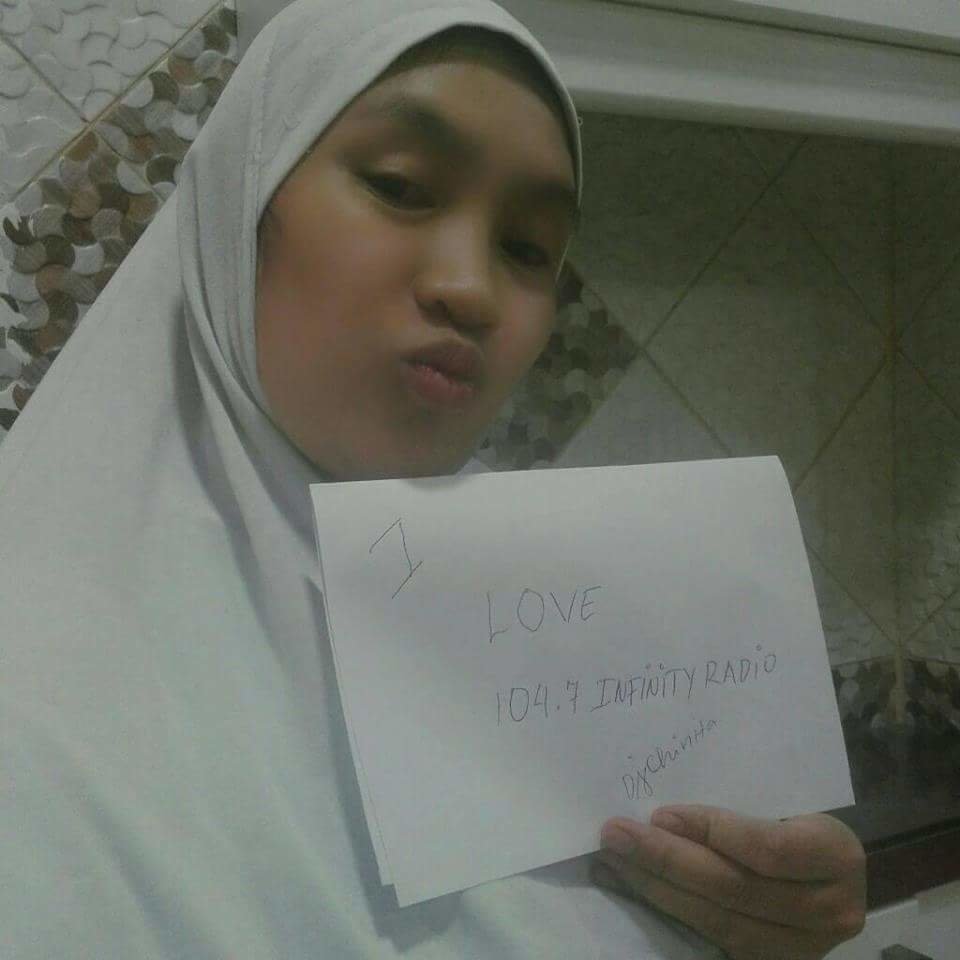 I
LOVE
104.7 INFINITY RADIO
Djchinita